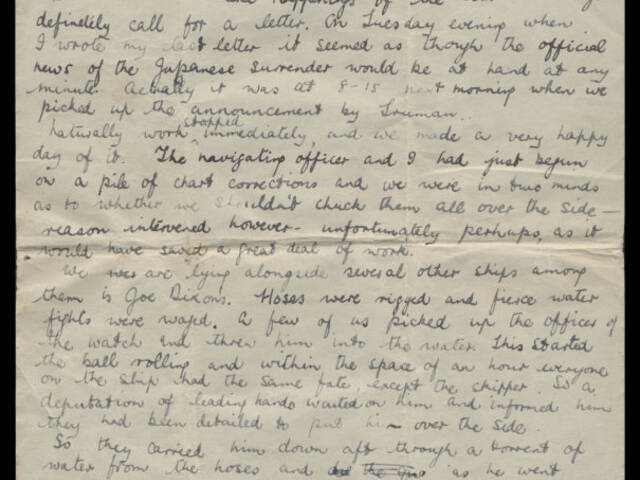 happenings of the
definitely call for a letter. On Tuesday evening when
I wrote my last letter it seemed as though the official
news of the Japanese surrender would be at hand at any
minute. Actually it was at 8-15 next morning when we
picked up the announcement by Truman..
Naturally work stopped immediately, and we made a very happy
day of it. The navigating officer and I had just begun
on a pile of chart corrections and we were in two minds
as to whether we shouldn't chuck them all over the side -
reason intervened however - unfortunately perhaps, as it
would have saved a great deal of work.
We were are lying alongside several other ships among
them is Joe Dixons. Hoses were rigged and fierce water
fights were waged. A few of us picked up the officer of
the watch and threw him into the water. This started
the ball rolling and within the space of an hour everyone
on the ship had the same fate, except the skipper. So a
deputation of leading hands waited on him and informed him
they had been detailed to put him over the side.
So they carried him down aft through a torrent of
water from the hoses and as he went